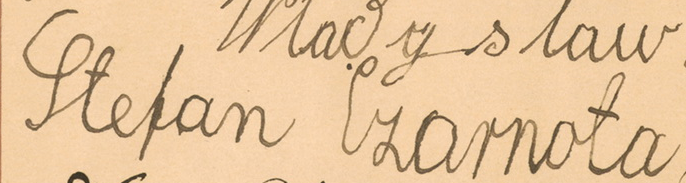 Władysław
Stefan Czarnota